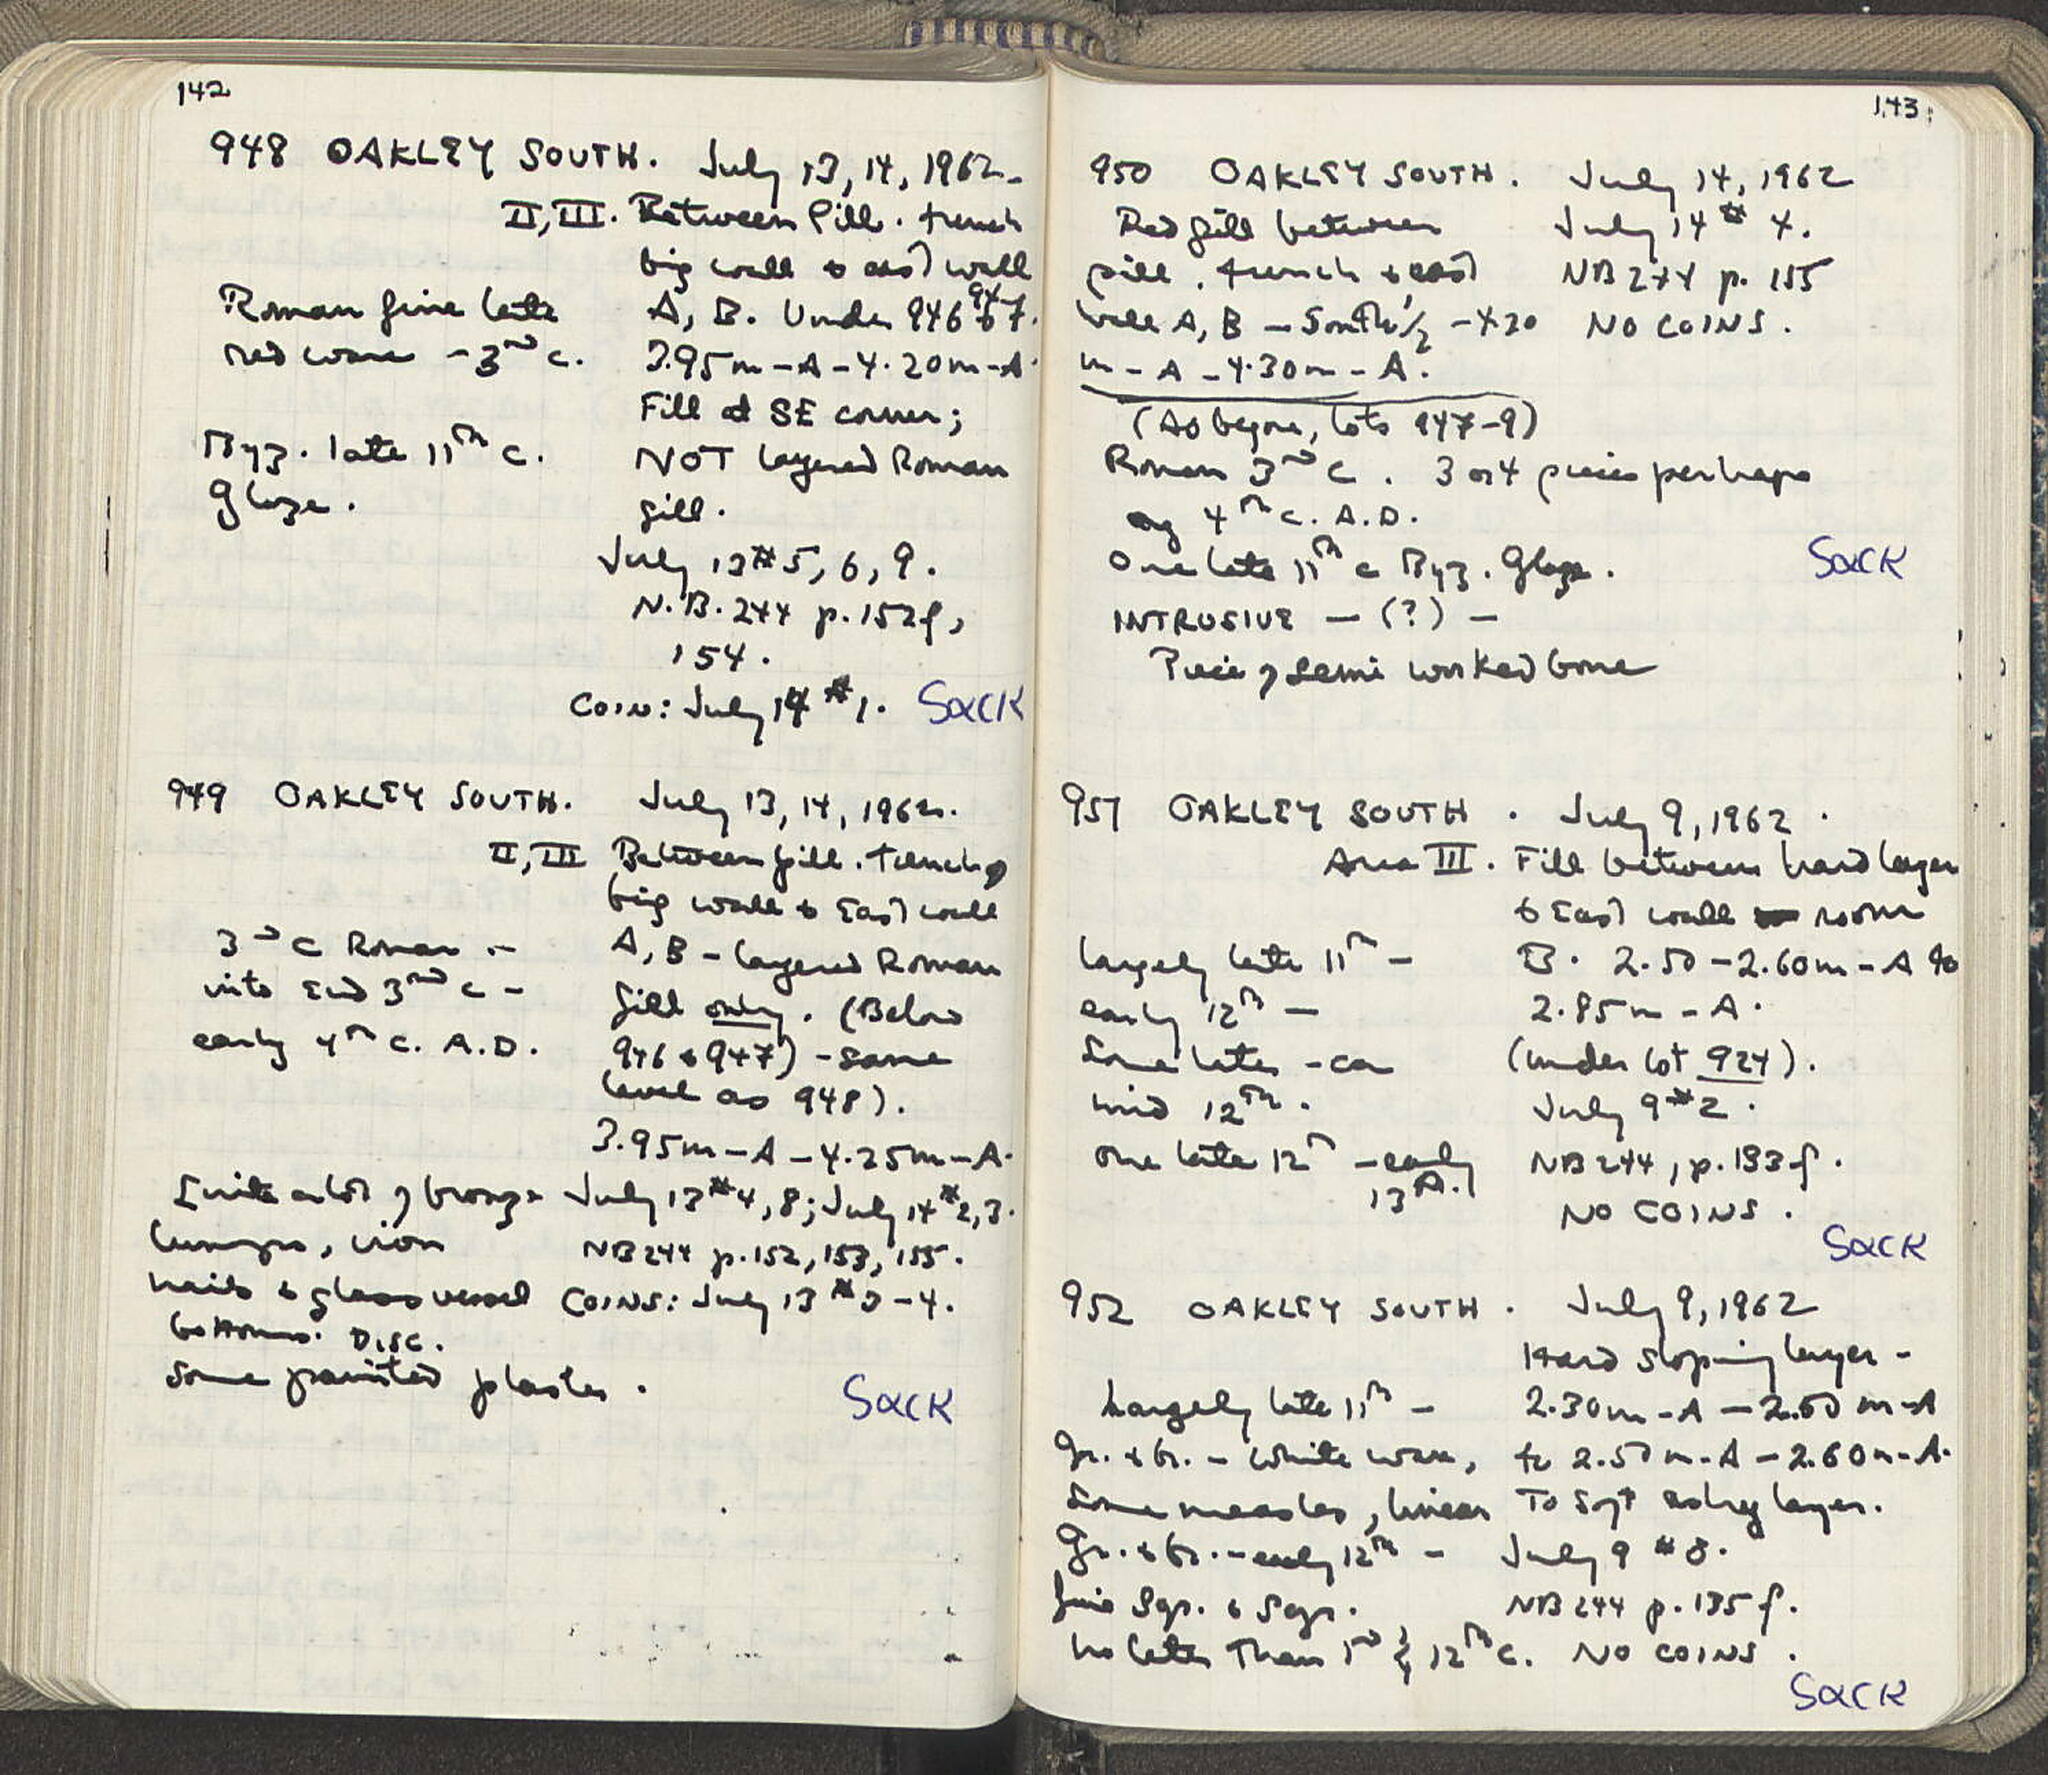 142
948 OAKLEY SOUTH. July 13, 14, 1962.
II, III. Between Pill. trench
big wall & east wall
A, B. Under 946 & 947.
3.95m-A-4.20m-A.
Fill at SE corner;
NOT layered Roman
fill.
July 13 #5, 6, 9.
N.B. 244 p. 152f,
154.
COIN: July 14 #1.
Roman fine late
red ware - 3rd c.
Byz. late 11th c.
Glaze.
Sack
949 OAKLEY SOUTH. July 13, 14, 1962.
II, III Between pill. trench,
big wall & East wall
A, B - layered Roman
fill only. (Below
946 & 947) - same
level as 948).
3.95m-A-4.25m-A.
July 13 #4, 8; July 14 #2, 3.
NB 244 p. 152, 153, 155.
COINS: July 13 #3-4.
3rd c Roman -
into End 3rd c -
early 4th c. A.D.
Quite a lot of bronze
lumps, iron
nails & glass vessel
bottoms. DISC.
Some painted plaster.
Sack
143
950 OAKLEY SOUTH. July 14, 1962
Red fill between
pill. trench & east
wall A, B - South 1/2 - 4.20
m-A-4.30m-A.
July 14 #4.
NB 244 p. 155
NO COINS.
(As before, lots 947-9)
Roman 3rd c. 3 or 4 pieces perhaps
of 4th c. A.D.
One late 11th c Byz. Glaze.
INTRUSIVE - (?) -
Piece of semi worked bone
Sack
951 OAKLEY SOUTH. July 9, 1962.
Area III. Fill between hard layer
& East wall room
B. 2.50-2.60m-A to
2.85m-A.
(under lot 924).
July 9 #2.
NB 244, p. 133f.
NO COINS.
largely late 11th -
early 12th -
Some later - ca
mid 12th.
one late 12th - early
13th.
Sack
952 OAKLEY SOUTH. July 9, 1962
Hard sloping layer -
2.30m-A-2.50m-A
to 2.50m-A-2.60m-A.
To soft ashy layer.
July 9 #3.
NB 244 p. 135f.
NO COINS.
Largely late 11th -
Gr. & br. - White ware,
Some measles, linear
Gr. & br. - early 12th -
fine Sgr. & Sgr.
no later than 1st 1/2 12th c.
Sack